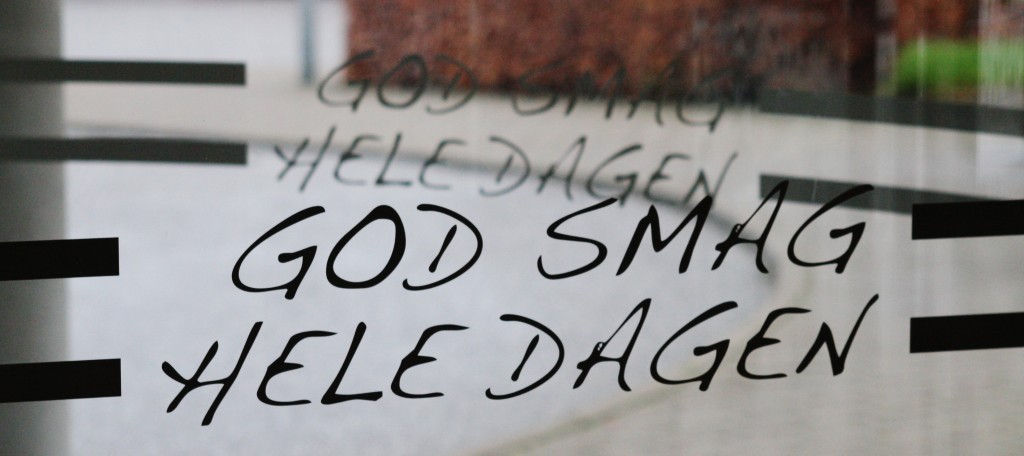 GOD SMAG
HELE DAGEN
GOD SMAG
HELE DAGEN